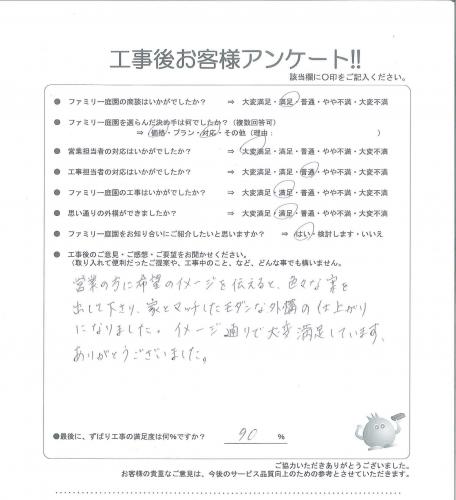 工事後お客様アンケート!!
該当欄に〇印をご記入ください。
● ファミリー庭園の商談はいかがでしたか？ ⇒ 大変満足・満足・普通・やや不満・大変不満
● ファミリー庭園を選らんだ決め手は何でしたか？（複数回答可）
⇒ 価格・プラン・対応・その他（理由： ）
● 営業担当者の対応はいかがでしたか？ ⇒ 大変満足・満足・普通・やや不満・大変不満
● 工事担当者の対応はいかがでしたか？ ⇒ 大変満足・満足・普通・やや不満・大変不満
● ファミリー庭園の工事はいかがでしたか？ ⇒ 大変満足・満足・普通・やや不満・大変不満
● 思い通りの外構ができましたか？ ⇒ 大変満足・満足・普通・やや不満・大変不満
● ファミリー庭園をお知り合いにご紹介したいと思いますか？ ⇒ はい・検討します・いいえ
● 工事後のご意見・ご感想・ご要望をお聞かせください。
（取り入れて便利だったご提案や、工事中のこと、など、どんな事でも構いません。
営業の方に希望のイメージを伝えると、色々な案を
出して下さり、家とマッチしたモダンな外構の仕上がり
になりました。イメージ通りで大変満足しています。
ありがとうございました。
●最後に、ずばり工事の満足度は何%ですか？ 90 %
ご協力いただきありがとうございました。
お客様の貴重なご意見は、今後のサービス品質向上のための参考とさせていただきます。